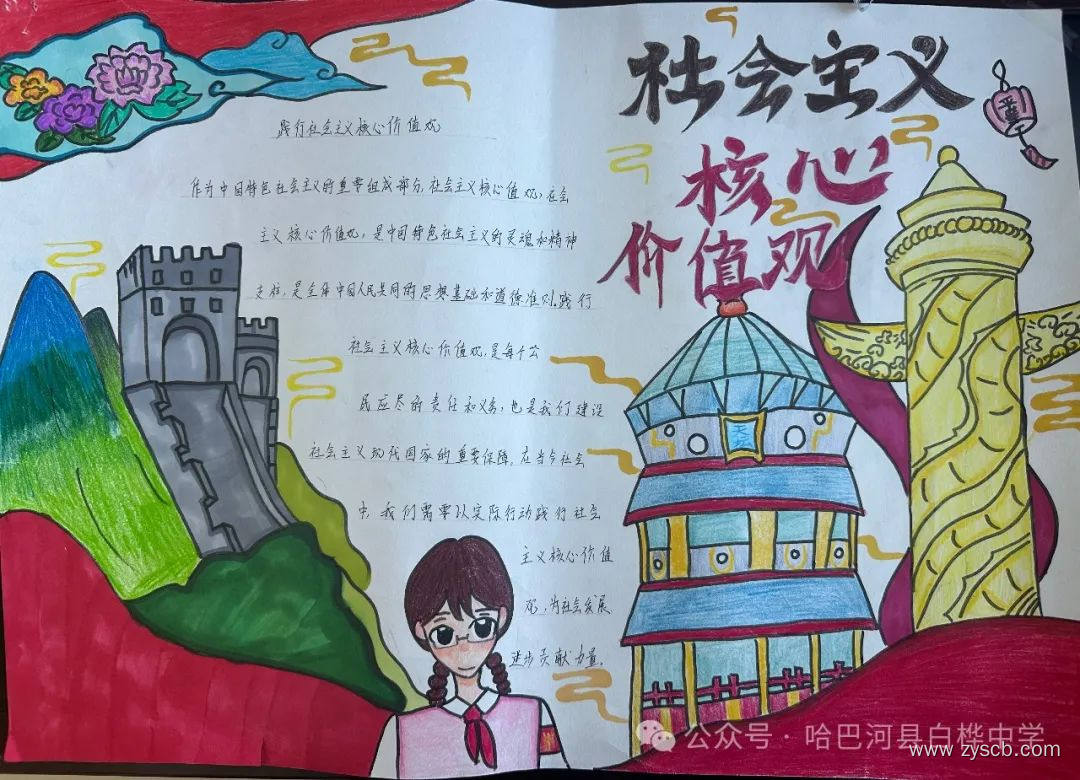 社会主义
核心
价值观
践行社会主义核心价值观
作为中国特色社会主义的重要组成部分,社会主义核心值观,社会
主义核心价值观,是中国特色社会主义的灵魂和精神
支柱,是全体中国人民共同的思想基础和道德准则,践行
社会主义核心价值观,是每个公
民应尽的责任和义务,也是我们建设
社会主义现代国家的重要保障,在当今社会
中,我们需要以实际行动践行社会
主义核心价值
观,为社会发展
进步贡献力量。
公众号·哈巴河县白桦中学
www.zyscb.com